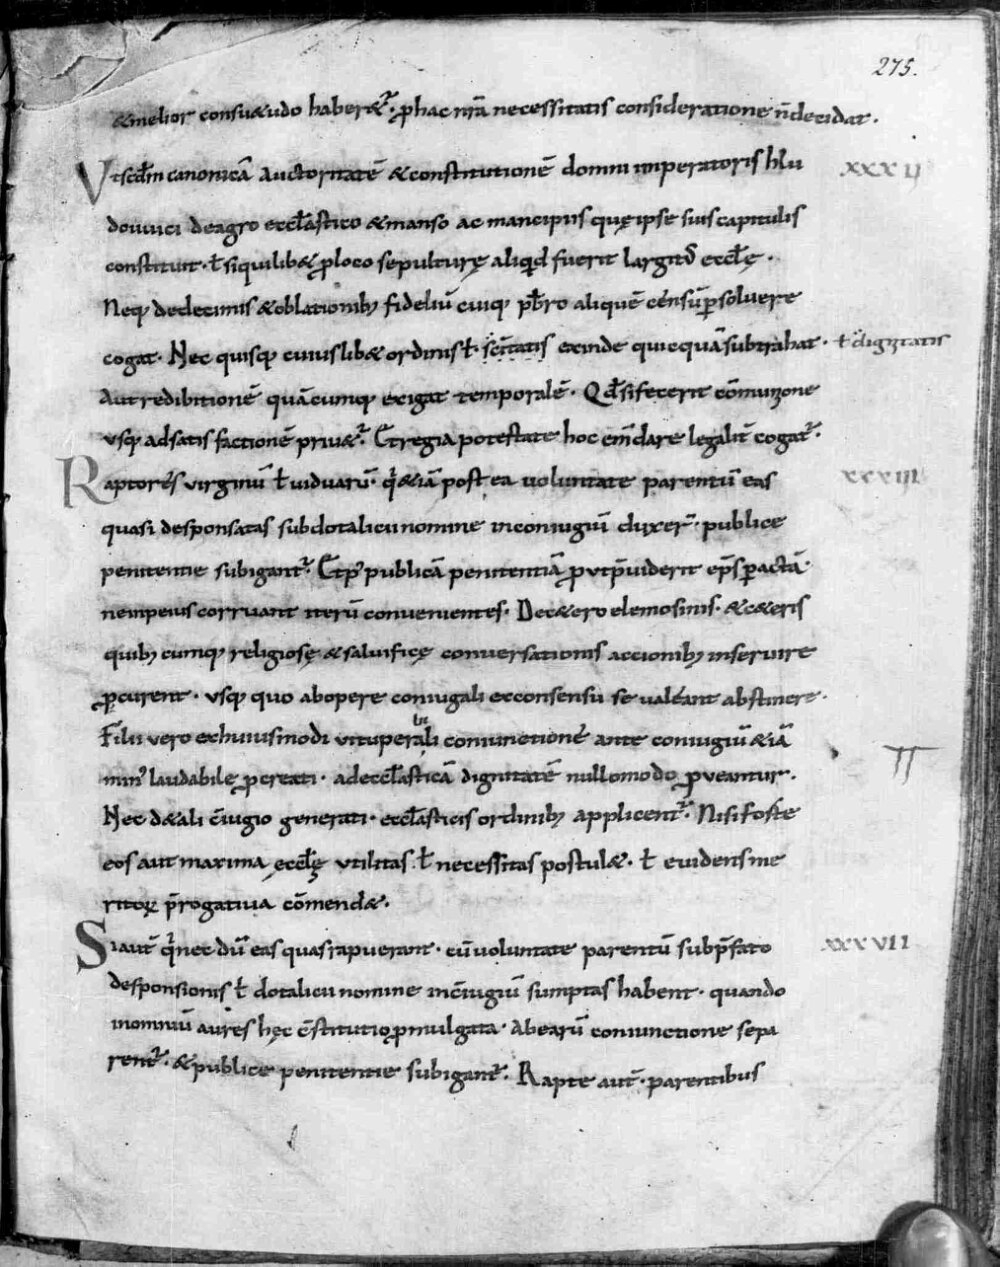 275.
&melior consu&udo haber&ur̃. p̱ hac nr̃a necessitatis consideratione n̄ decidat.
Vt sc̄dm̄ canonicā auctoritatē & constitutionē domni imperatoris hlu XXXII
douuici de agro eccl̄astico & manso ac mancipiis quę ipse suis capitulis
constituit. ł si quilib& p̱ loco sepulturę aliqid fuerit largitus eccl̄ę.
Neq; de decimis & oblationib; fideliū cuiq; pb̄ro aliquē censū p̱soluere
cogat. Nec quisq; cuiuslib& ordinis ł sc̄itatis exinde quicquā subtrahat. ł dignitatis
Aut redibitionē quācumq; exigat temporalē. Qd̄ si fecerit cōmunione
usq; ad satisfactionē priu&ur̃. Et regia potestate hoc em̄dare legalit̄ cogat̃.
Raptores virginū ł viduarū. qi &iā post ea uoluntate parentū eas XXXIII
quasi desponsatas sub dotalicii nomine in coniugiū duxer̃. publice
penitentie subigant̃. Et p' publicā penitentiā p̱ut p̄uiderit ep̄s p̱actā.
ne in peius corruant iterū conuenientes. De c&ero elemosinis. & c&eris
quib; cumq; religiosę & saluificę conuersationis accionib; inseruire
p̱curent. usq; quo ab opere coniugali ex consensu se ualeant abstinere.
Filii vero ex huiusmodi uituperali bi coniunctione ante coniugiū &iā
min' laudabile p̱creati. ad eccl̄asticā dignitatē nullomodo p̱ueantur.
Nec d& ali c̄iugio generati. eccl̄asticis ordinib; applicent̃. Nisi forte
eos aut maxima ęccl̄ę utilitas ł necessitas postul&. ł euidens me
ritorꝝ p̄rogatiua cōmend&.
Si aut̄ qi nec dū eas quas rapuerant. cū uoluntate parentū sub p̄fato XXXVII
desponsionis ł dotalicii nomine in c̄iugiū sumptas habent. quando
in omniū aures hęc c̄stitutio p̱mulgata. Ab earū coniunctione sepa
rent̃. & publice penitentie subigant̃. Rapte aut̄. parentibus